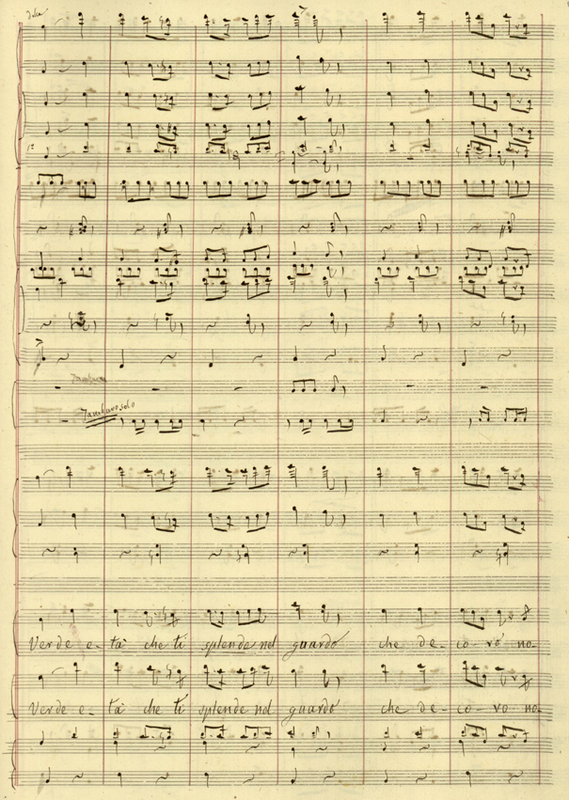 dolce
Tamburo
Tamburo solo
Verde e- tà che ti splende nel guardo che de- co- rò no-
Verde e- tà che ti splende nel guardo che de- co- rò no-